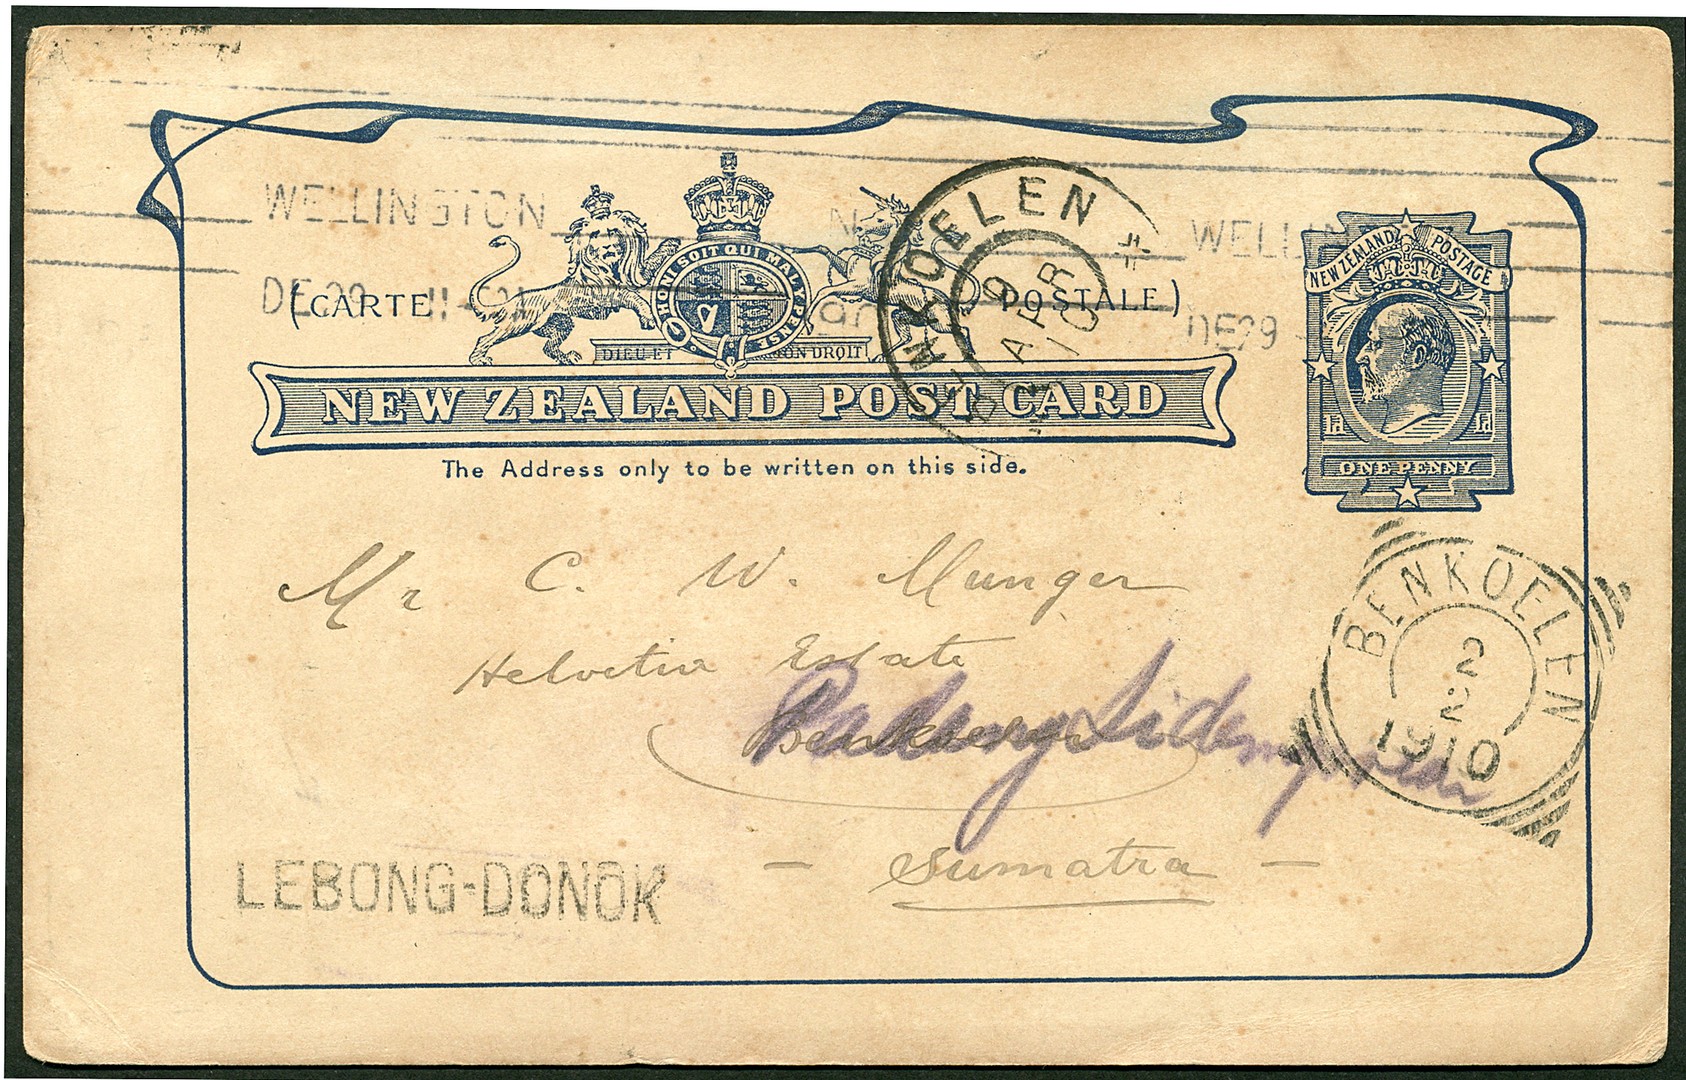 WELLINGTON N WELLIN
DE 29 11- DE29
(CARTE POSTALE)
HONI SOIT QUI MAL Y PENSE
DIEU ET MON DROIT
NEW ZEALAND POST CARD
The Address only to be written on this side.
NEW ZEALAND POSTAGE
1d 1d
ONE PENNY
BENKOELEN
9
APR
10
Mr C. W. Munger
Helvetia Estate
Benkoelen
Padang Sidempoean
- Sumatra -
BENKOELEN
2
2
1910
LEBONG-DONOK